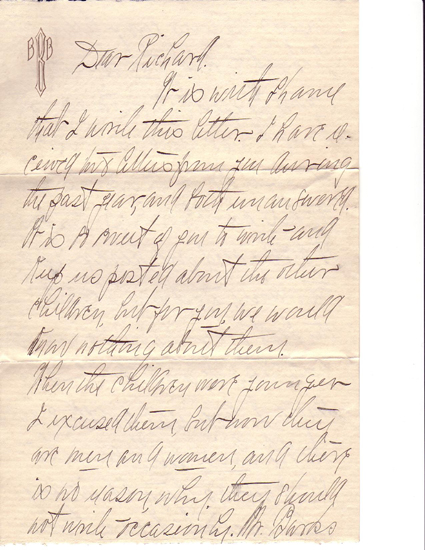 B B
Dear Richard.
It is with shame
that I write this letter. I have re-
ceived two letters from you during
the past year, and both unanswered.
It is so sweet of you to write and
keep us posted about the other
children, but for you, we would
know nothing about them.
When the children were younger
I excused them, but now they
are men and women, and there
is no reason, why, they should
not write occasionly. Mr.